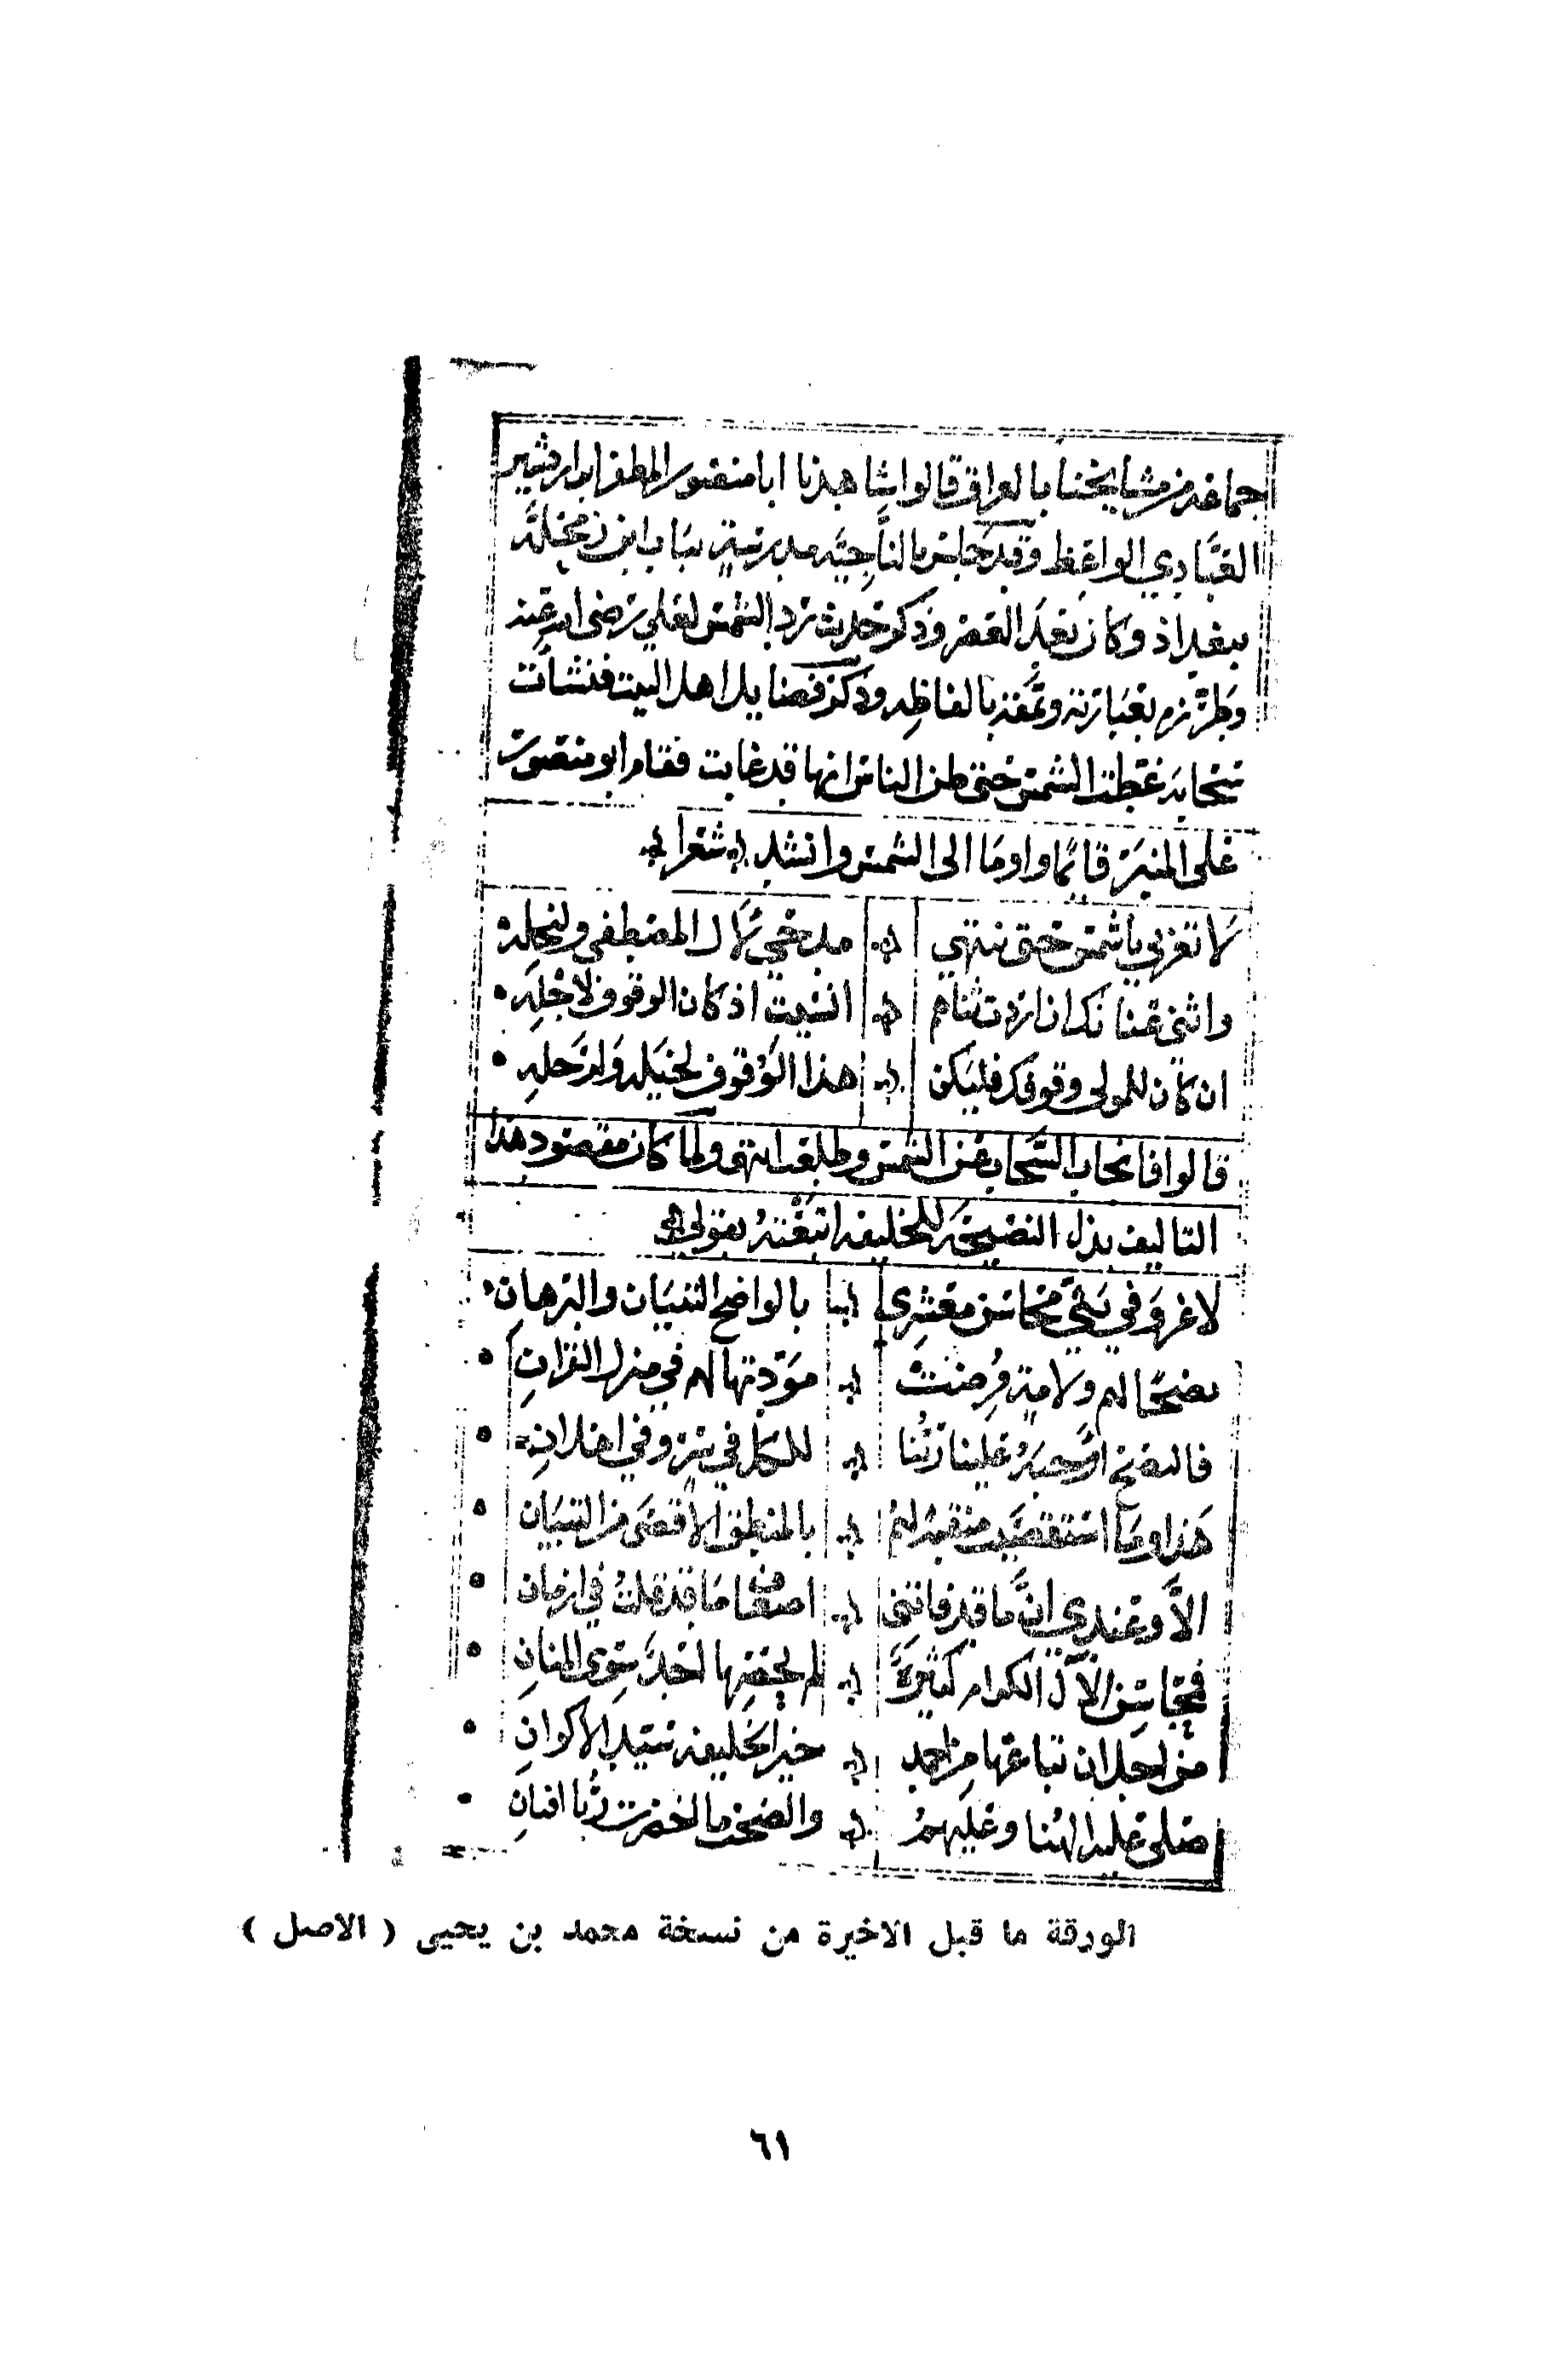 جماعة من مشايخنا بالعراق قالوا شاهدنا ابا منصور المظفر ابن اردشير
العبادي الواعظ وقد جلس بالناجية مدرسة بباب ابرز محلة
ببغداذ وكان بعد العصر وذكر حديث رد الشمس لعلي رضي الله عنه
وطرزه بعبارته ونمقه بالفاظه وذكر فضايل اهل البيت فنشأت
سحابة غطت الشمس حتى ظن الناس انها قد غابت فقام ابو منصور
على المنبر قائما واوما الى الشمس وانشد شعرا
لا تغربي يا شمس حتى ينتهي مدحي لآل المصطفى ولنجله
واثني عنانك ان اردت ثناهم انسيت اذ كان الوقوف لاجله
ان كان للمولى وقوفك فليكن هذا الوقوف لخيله ولرجله
قالوا فانجاب السحاب عن الشمس وطلعت انتهى ولما كان مقصود هذا
التاليف بذل النصيحة للخليفة اتبعته بقولي
لا غرو في بثي محاسن معشري بالواضح التبيان والبرهان
نصحا لهم ولامة فرضت مودتها لهم في منزل القران
فالنصح اوجبه علينا ربنا للكل في سر وفي اعلان
هذا وما استقصيت منقبة لهم بالمنطق الاقصى من التبيان
الا وعندي ان ما قد فاتني اضعاف ما قد قلت في ازمان
فمحاسن الآل الكرام كثيرة لم يحصها احد سوى المنان
من اجل ان تباعها من احمد خير الخليقة سيد الاكوان
صلى عليه الهنا وعليهم والصحب ما اخضرت ربا افنان
الورقة ما قبل الاخيرة من نسخة محمد بن يحيى ( الاصل )
٦١